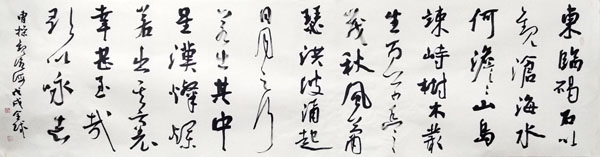 東臨碣石以
觀滄海水
何澹々山島
竦峙樹木叢
生百草豐
茂秋風蕭
瑟洪波涌起
日月之行
若出其中
星漢燦爛
若出其裏
幸甚至哉
歌以咏志
曹操觀滄海戊戌